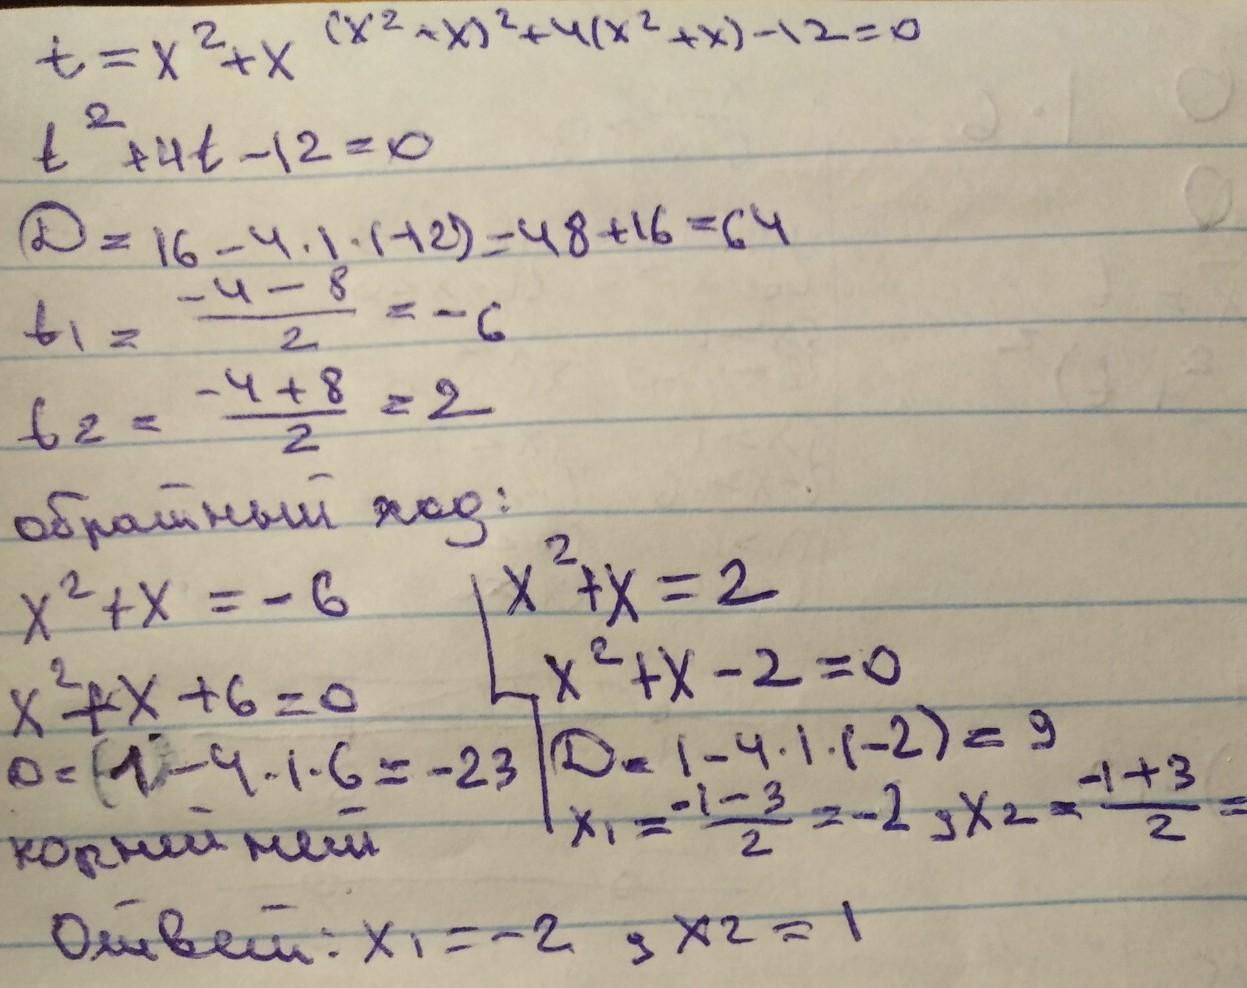 t = x² + x (x² + x)² + 4(x² + x) - 12 = 0
t² + 4t - 12 = 0
D = 16 - 4 · 1 · (-12) = 48 + 16 = 64
t1 = (-4 - 8)/2 = -6
t2 = (-4 + 8)/2 = 2
обратный ход:
x² + x = -6
x² + x + 6 = 0
D = (1) - 4 · 1 · 6 = -23
корней нет
x² + x = 2
x² + x - 2 = 0
D = 1 - 4 · 1 · (-2) = 9
x1 = (-1 - 3)/2 = -2, x2 = (-1 + 3)/2 =
Ответ: x1 = -2, x2 = 1